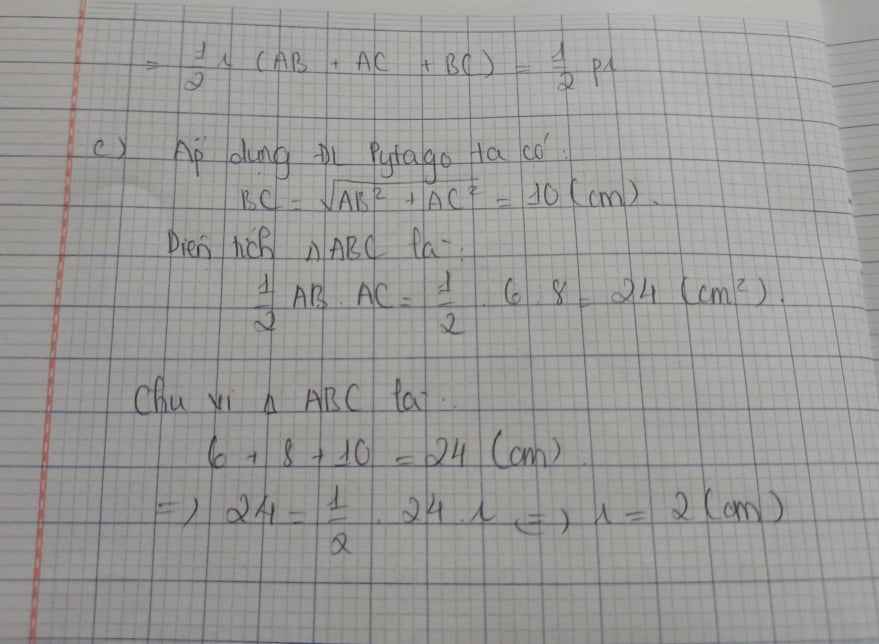 = 1/2 r (AB + AC + BC) = 1/2 pr
c) Áp dụng ĐL Pytago ta có:
BC = √(AB² + AC²) = 10 (cm).
Diện tích Δ ABC là:
1/2 AB . AC = 1/2 . 6 . 8 = 24 (cm²).
Chu vi Δ ABC là:
6 + 8 + 10 = 24 (cm)
=> 24 = 1/2 . 24 . r => r = 2 (cm)